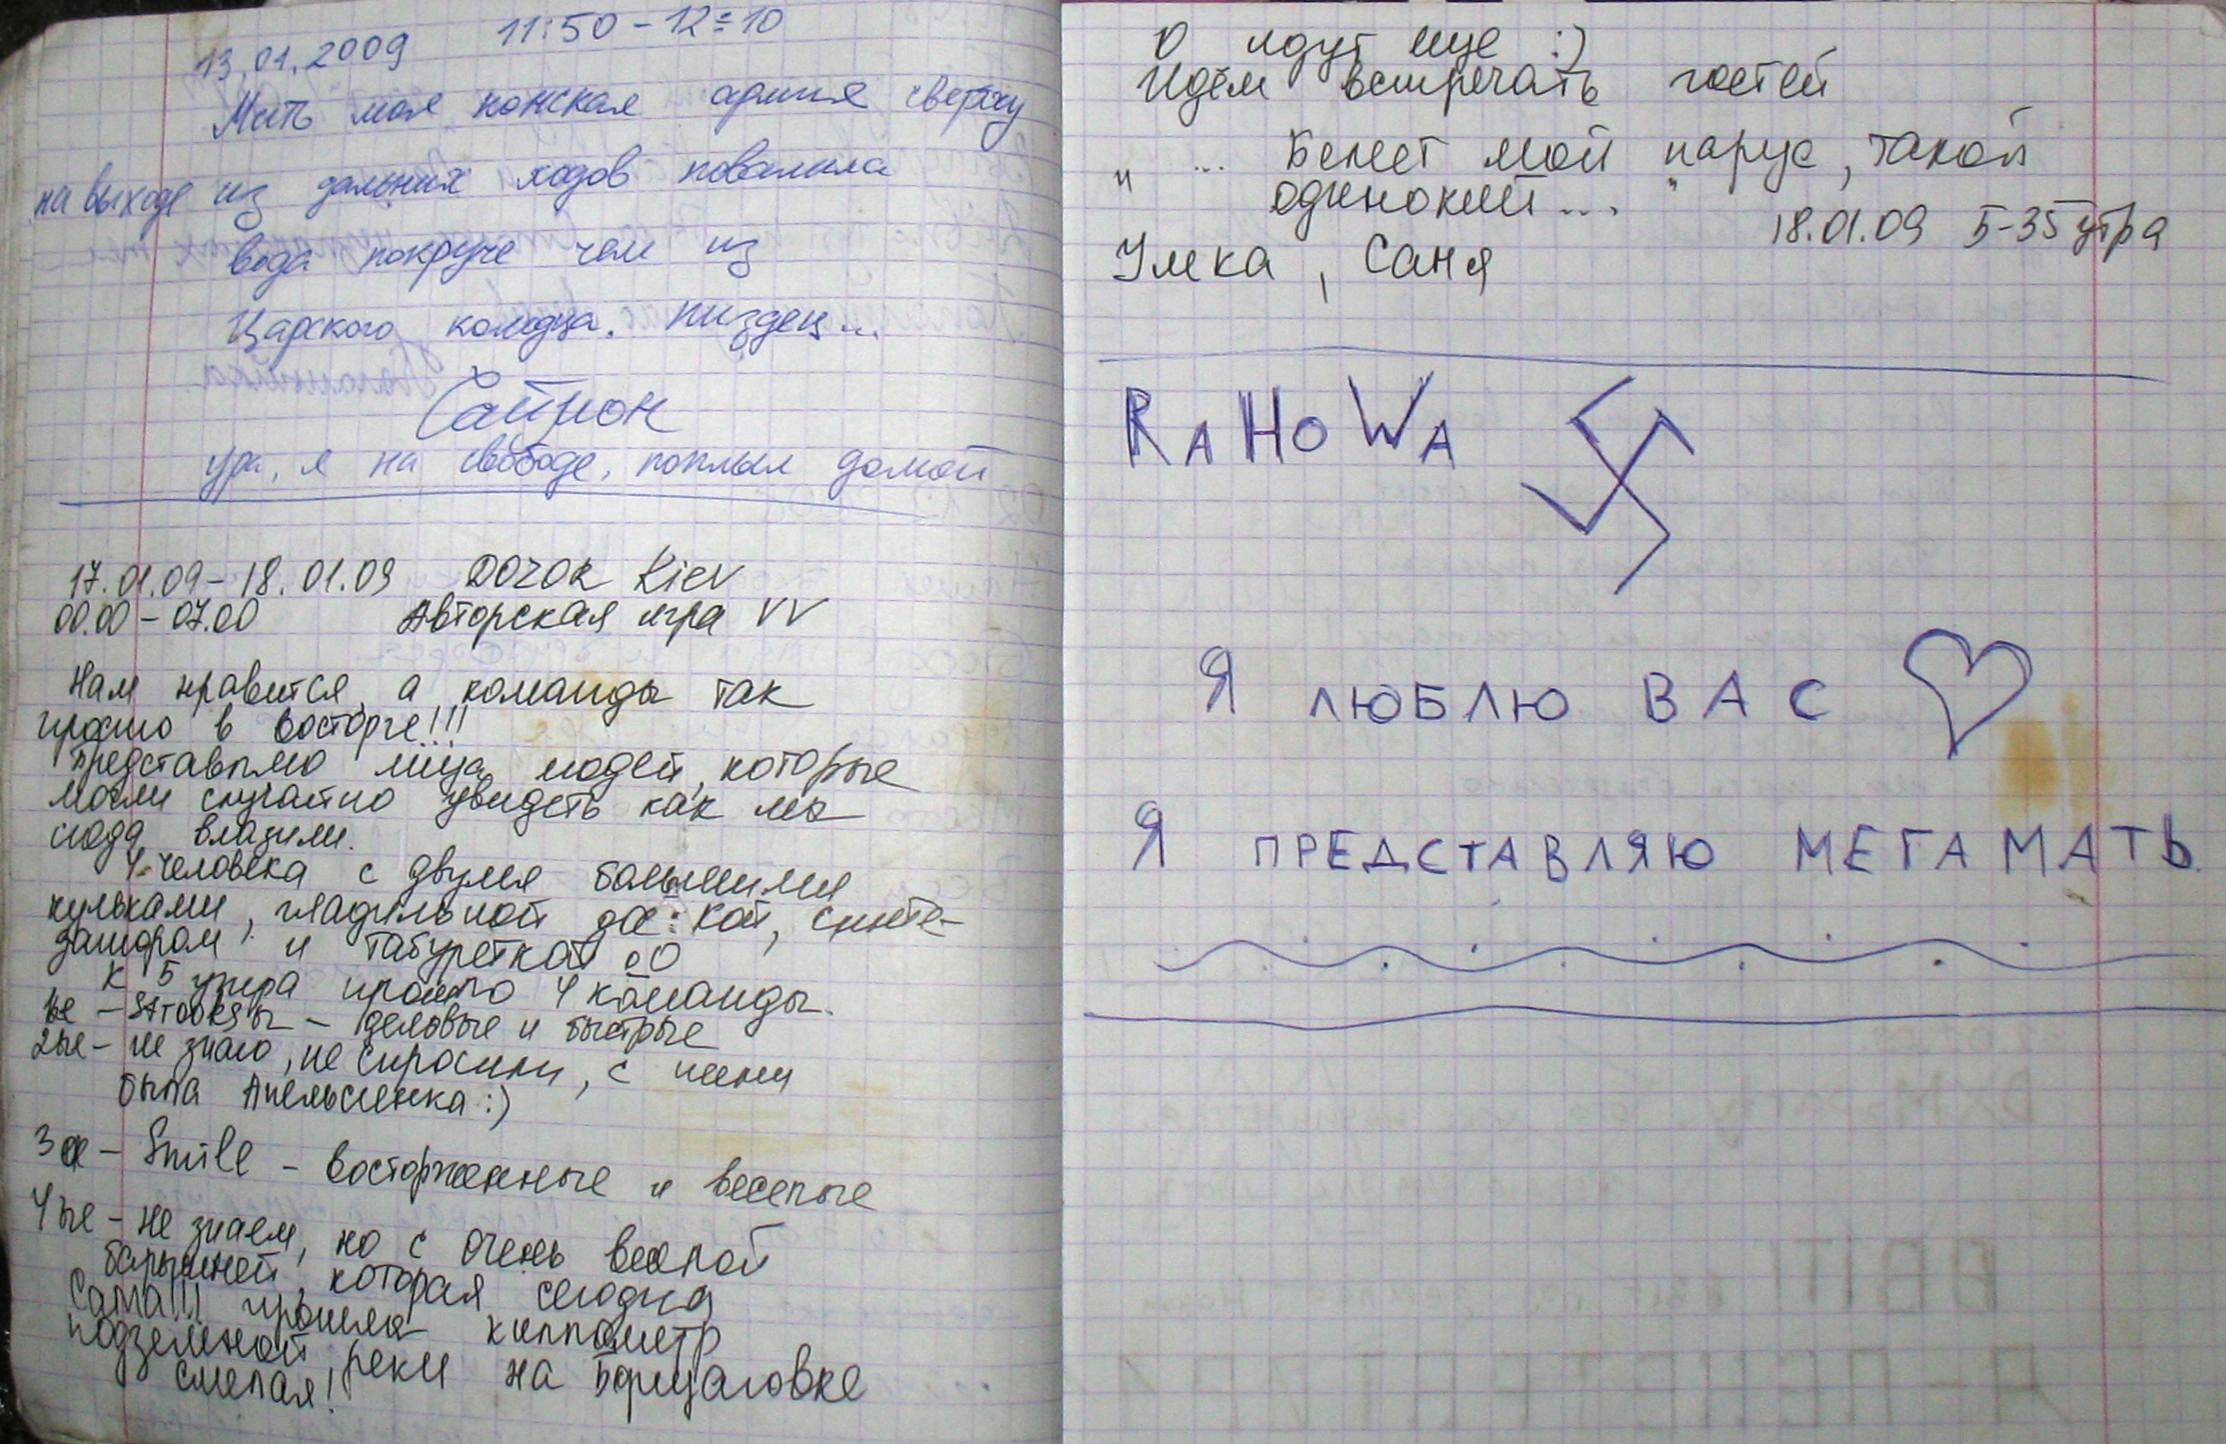 13.01.2009 11:50 - 12:10
Мать моя женская армия сверху
на выходе из дальних ходов повалила
вода покруче чем из
Царского колодца. пиздец...
Сайрон
ура, я на свободе, поплыл домой
17.01.09 - 18.01.09 DOZOR Kiev
00.00 - 07.00 Авторская игра VV
Нам нравится, а команды так
просто в восторге!!!
Представляю лица людей, которые
могли случайно увидеть как мы
сюда влазили.
4 человека с двумя большими
кульками, гладильной доской, синте-
затором и табуреткой оО
К 5 утра прошло 4 команды.
1ые - SATOORSы - деловые и быстрые
2ые - не знаю, не спросили, с ними
была Апельсинка :)
3и - Smile - восторженные и веселые
4ые - не знаем, но с очень веселой
барышней, которая сегодня
сама!!! прошла километр
подземной реки на Борщаговке
смелая!
О идут еще :)
Идём встречать гостей
„ ... Белеет мой парус, такой
одинокий... "
18.01.09 5-35 утра
Умка, Саня
RAHOWA
Я ЛЮБЛЮ ВАС
Я ПРЕДСТАВЛЯЮ МЕГАМАТЬ